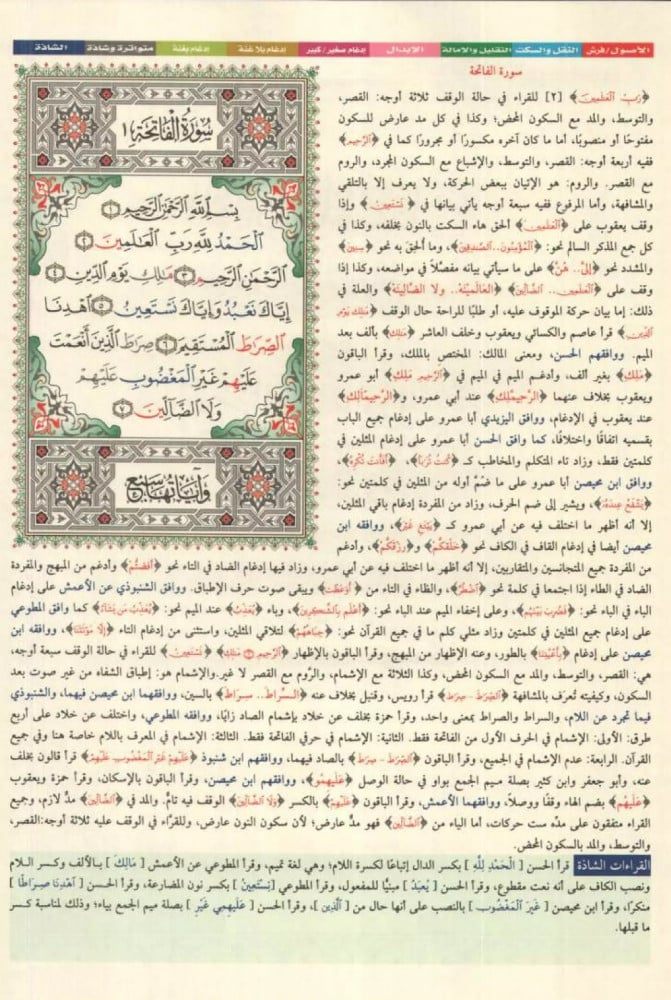 الأصول/فرش النقل والسكت التقليل والإمالة الإبدال إدغام صغير/كبير إدغام بلا غنة إدغام بغنة متواترة وشاذة الشاذة
سورة الفاتحة
﴿رَبِّ ٱلْعَٰلَمِينَ﴾ [٢] للقراء في حالة الوقف ثلاثة أوجه: القصر،
والتوسط، والمد مع السكون المحض؛ وكذا في كل مد عارض للسكون
مفتوحًا أو منصوبًا، أما ما كان آخره مكسورًا أو مجرورًا كما في ﴿ٱلرَّحِيمِ﴾
ففيه أربعة أوجه: القصر، والتوسط، والإشباع مع السكون المجرد، والروم
مع القصر. والروم: هو الإتيان ببعض الحركة، ولا يعرف إلا بالتلقي
والمشافهة، وأما المرفوع ففيه سبعة أوجه يأتي بيانها في ﴿نَسْتَعِينُ﴾ وإذا
وقف يعقوب على ﴿ٱلْعَٰلَمِينَ﴾ ألحق هاء السكت بالنون بخلفه، وكذا في
كل جمع المذكر السالم نحو: ﴿ٱلْمُؤْمِنُونَ..ٱلصَّٰدِقِينَ﴾، وما ألحق به نحو ﴿سِنِينَ﴾
والمشدد نحو ﴿إِلَىَّ.. هُنَّ﴾ على ما سيأتي بيانه مفصّلًا في مواضعه، وكذا إذا
وقف على ﴿ٱلْعَٰلَمِينَ.. ٱلضَّآلِّينَ﴾ ﴿العالمينَهْ.. ولا الضالينَهْ﴾ والعلة في
ذلك: إما بيان حركة الموقوف عليه، أو طلبًا للراحة حال الوقف ﴿مَٰلِكِ يَوْمِ
ٱلدِّينِ﴾ قرأ عاصم والكسائي ويعقوب وخلف العاشر ﴿مَٰلِكِ﴾ بألف بعد
الميم. ووافقهم الحسن، ومعنى المالك: المختص بالملك، وقرأ الباقون
﴿مَلِكِ﴾ بغير ألف، وأدغم الميم في الميم في ﴿ٱلرَّحِيمِ مَلِكِ﴾ أبو عمرو
ويعقوب بخلاف عنهما ﴿الرَّحِيمْمَلِكِ﴾ عند أبي عمرو، و﴿الرَّحِيمْمَالِكِ﴾
عند يعقوب في الإدغام، ووافق اليزيدي أبا عمرو على إدغام جميع الباب
بقسميه اتفاقًا واختلافًا، كما وافق الحسن أبا عمرو على إدغام المثلين في
كلمتين فقط، وزاد تاء المتكلم والمخاطب كـ ﴿كُنتُ تُرَٰبًا﴾، ﴿أَفَأَنتَ تُكْرِهُ﴾،
ووافق ابن محيصن أبا عمرو على ما ضمَّ أوله من المثلين في كلمتين نحو:
﴿يَشْفَعُ عِندَهُ﴾، ويشير إلى ضم الحرف، وزاد من المفردة إدغام باقي المثلين،
إلا أنه أظهر ما اختلف فيه عن أبي عمرو كـ ﴿يَبْتَغِ غَيْرَ﴾، ووافقه ابن
محيصن أيضا في إدغام القاف في الكاف نحو ﴿خَلَقَكُمْ﴾ و﴿رَزَقَكُمْ﴾، وأدغم
من المفردة جميع المتجانسين والمتقاربين، إلا أنه أظهر ما اختلف فيه عن أبي عمرو، وزاد فيها إدغام الضاد في التاء نحو ﴿أَفَضْتُم﴾ وأدغم من المبهج والمفردة
الضاد في الطاء إذا اجتمعا في كلمة نحو ﴿ٱضْطُرَّ﴾، والظاء في التاء من ﴿أَوَعَظْتَ﴾ ويبقى صوت حرف الإطباق. ووافق الشنبوذي عن الأعمش على إدغام
الباء في الباء نحو: ﴿فَضُرِبَ بَيْنَهُم﴾، وعلى إخفاء الميم عند الباء نحو: ﴿أَعْلَمَ بِٱلشَّٰكِرِينَ﴾، وباء ﴿يُعَذِّبُ﴾ عند الميم نحو: ﴿يُعَذِّبُ مَن يَشَآءُ﴾ كما وافق المطوعي
على إدغام جميع المثلين في كلمتين وزاد مثلي كلم ما في جميع القرآن نحو: ﴿جِبَاهُهُمْ﴾ لتلاقي المثلين، واستثنى من إدغام التاء ﴿إِلَّا مَوْتَتَنَا﴾، ووافقه ابن
محيصن على إدغام ﴿بِأَعْيُنِنَا﴾ بالطور، وعنه الإظهار من المبهج، وقرأ الباقون بالإظهار ﴿ٱلرَّحِيمِ ۝ مَلِكِ﴾ ﴿نَسْتَعِينُ﴾ للقراء في حالة الوقف سبعة أوجه،
هي: القصر، والتوسط، والمد مع السكون المحض، وكذا الثلاثة مع الإشمام، والرَّوم مع القصر لا غير.والإشمام هو: إطباق الشفاه من غير صوت بعد
السكون، وكيفيته تُعرف بالمشافهة ﴿ٱلصِّرَٰطَ - صِرَٰطَ﴾ قرأ رويس، وقنبل بخلاف عنه ﴿السِّراط.. سِراط﴾ بالسين، ووافقهما ابن محيصن فيهما، والشنبوذي
فيما تجرد عن اللام، والسراط والصراط بمعنى واحد، وقرأ حمزة بخلف عن خلاد بإشمام الصاد زايًا، ووافقه المطوعي، واختلف عن خلاد على أربع
طرق: الأولى: الإشمام في الحرف الأول من الفاتحة فقط. الثانية: الإشمام في حرفي الفاتحة فقط. الثالثة: الإشمام في المعرف باللام خاصة هنا وفي جميع
القرآن. الرابعة: عدم الإشمام في الجميع، وقرأ الباقون ﴿ٱلصِّرَٰطَ - صِرَٰطَ﴾ بالصاد فيهما، ووافقهم ابن شنبوذ ﴿عَلَيْهِمْ غَيْرِ ٱلْمَغْضُوبِ عَلَيْهِمْ﴾ قرأ قالون بخلف
عنه، وأبو جعفر وابن كثير بصلة ميم الجمع بواو في حالة الوصل ﴿عَلَيْهِمُو﴾، ووافقهم ابن محيصن، وقرأ الباقون بالإسكان، وقرأ حمزة ويعقوب
﴿عَلَيْهُم﴾ بضم الهاء وقفًا ووصلًا، ووافقهما الأعمش، وقرأ الباقون ﴿عَلَيْهِمْ﴾ بالكسر ﴿وَلَا ٱلضَّآلِّينَ﴾ الوقف فيه تامٌّ. والمد في ﴿ٱلضَّآلِّينَ﴾ مدٌّ لازم، وجميع
القراء متفقون على مدِّه ست حركات، أما الياء من ﴿ٱلضَّآلِّينَ﴾ فهو مدٌّ عارض؛ لأن سكون النون عارض، وللقرَّاء في الوقف عليه ثلاثة أوجه:القصر،
والتوسط، والمد بالسكون المحض.
القراءات الشاذة قرأ الحسن [الْحَمْدِ لِلَّهِ] بكسر الدال إتباعًا لكسرة اللام؛ وهي لغة تميم، وقرأ المطوعي عن الأعمش [مَالِكَ] بـالألف وكسر الـلام
ونصب الكاف على أنه نعت مقطوع، وقرأ الحسن [يُعْبَدُ] مبنيًّا للمفعول، وقرأ المطوعي [نِسْتَعِينُ] بكسر نون المضارعة، وقرأ الحسن [اهْدِنَا صِرَاطًا]
منكرًا، وقرأ ابن محيصن [غَيْرَ الْمَغْضُوبِ] بالنصب على أنها حال من [الَّذِينَ]، وقرأ الحسن [عَلَيْهِمِي غَيْرِ] بصلة ميم الجمع بياء؛ وذلك لمناسبة كسر
ما قبلها.
سُورَةُ ٱلْفَاتِحَةِ ١
بِسْمِ ٱللَّهِ ٱلرَّحْمَٰنِ ٱلرَّحِيمِ ١
ٱلْحَمْدُ لِلَّهِ رَبِّ ٱلْعَٰلَمِينَ ٢
ٱلرَّحْمَٰنِ ٱلرَّحِيمِ ٣ مَٰلِكِ يَوْمِ ٱلدِّينِ ٤
إِيَّاكَ نَعْبُدُ وَإِيَّاكَ نَسْتَعِينُ ٥ ٱهْدِنَا
ٱلصِّرَٰطَ ٱلْمُسْتَقِيمَ ٦ صِرَٰطَ ٱلَّذِينَ أَنْعَمْتَ
عَلَيْهِمْ غَيْرِ ٱلْمَغْضُوبِ عَلَيْهِمْ
وَلَا ٱلضَّآلِّينَ ٧
وَآيَاتُهَا سَبْعٌ